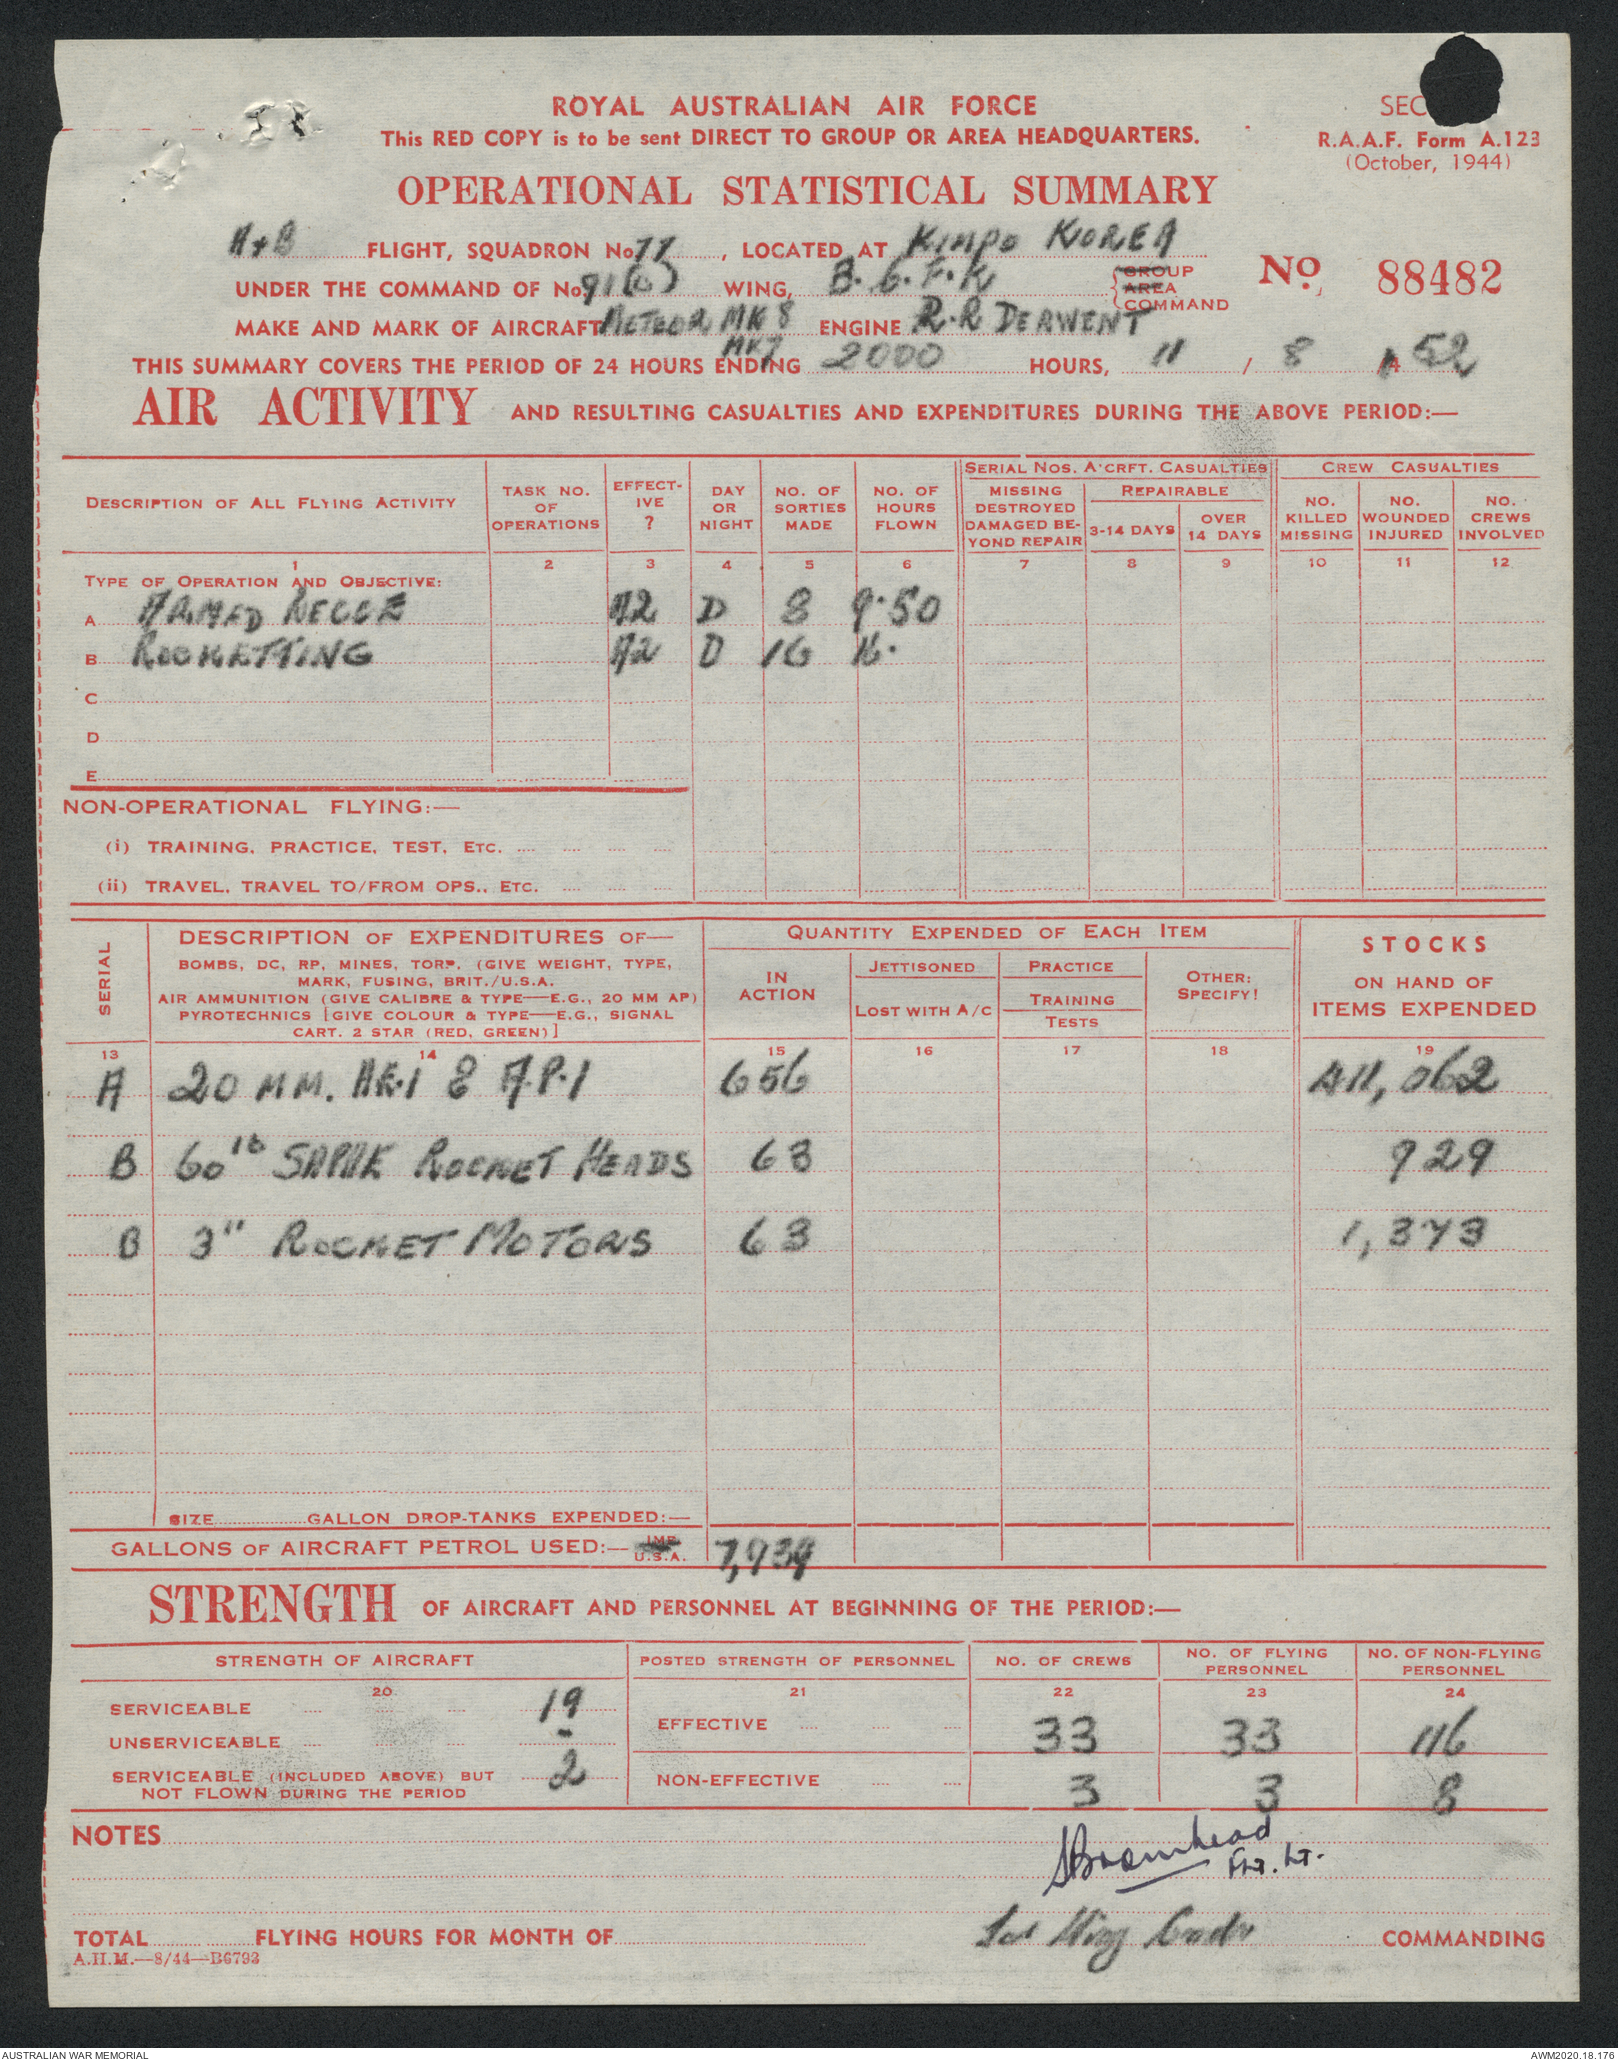 ROYAL AUSTRALIAN AIR FORCE
SEC
This RED COPY is to be sent DIRECT TO GROUP OR AREA HEADQUARTERS.
R.A.A.F. Form A.123
(October, 1944)
OPERATIONAL STATISTICAL SUMMARY
A+B FLIGHT, SQUADRON No 77, LOCATED AT KIMPO KOREA
UNDER THE COMMAND OF No. 91(C) WING, B.C.F.K GROUP AREA COMMAND
No. 88482
MAKE AND MARK OF AIRCRAFT METEOR MK 8 ENGINE R.R DERWENT
MK7
THIS SUMMARY COVERS THE PERIOD OF 24 HOURS ENDING 2000 HOURS, 11 / 8 / 52
AIR ACTIVITY AND RESULTING CASUALTIES AND EXPENDITURES DURING THE ABOVE PERIOD:—
DESCRIPTION OF ALL FLYING ACTIVITY
TASK NO. OF OPERATIONS
EFFECT-IVE ?
DAY OR NIGHT
NO. OF SORTIES MADE
NO. OF HOURS FLOWN
SERIAL NOS. A'CRFT. CASUALTIES
MISSING DESTROYED DAMAGED BE-YOND REPAIR
REPAIRABLE
3-14 DAYS
OVER 14 DAYS
CREW CASUALTIES
NO. KILLED MISSING
NO. WOUNDED INJURED
NO. CREWS INVOLVED
1 2 3 4 5 6 7 8 9 10 11 12
TYPE OF OPERATION AND OBJECTIVE:
A ARMED RECCE A2 D 8 9.50
B ROCKETTING A2 D 16 16.
C
D
E
NON-OPERATIONAL FLYING:—
(i) TRAINING, PRACTICE, TEST, ETC.
(ii) TRAVEL, TRAVEL TO/FROM OPS., ETC.
SERIAL
DESCRIPTION OF EXPENDITURES OF—
BOMBS, DC, RP, MINES, TORP. (GIVE WEIGHT, TYPE,
MARK, FUSING, BRIT./U.S.A.
AIR AMMUNITION (GIVE CALIBRE & TYPE—E.G., 20 MM AP)
PYROTECHNICS [GIVE COLOUR & TYPE—E.G., SIGNAL
CART. 2 STAR (RED, GREEN)]
QUANTITY EXPENDED OF EACH ITEM
IN ACTION
JETTISONED
LOST WITH A/C
PRACTICE
TRAINING
TESTS
OTHER: SPECIFY!
STOCKS
ON HAND OF
ITEMS EXPENDED
13 14 15 16 17 18 19
A 20 MM. HE.1 & A.P.1 656 411,062
B 60 lb SAPHE ROCKET HEADS 63 929
B 3" ROCKET MOTORS 63 1,373
SIZE GALLON DROP-TANKS EXPENDED:—
GALLONS OF AIRCRAFT PETROL USED:— IMP. U.S.A. 7,939
STRENGTH OF AIRCRAFT AND PERSONNEL AT BEGINNING OF THE PERIOD:—
STRENGTH OF AIRCRAFT
POSTED STRENGTH OF PERSONNEL
NO. OF CREWS
NO. OF FLYING PERSONNEL
NO. OF NON-FLYING PERSONNEL
20 21 22 23 24
SERVICEABLE 19
UNSERVICEABLE -
SERVICEABLE (INCLUDED ABOVE) BUT
NOT FLOWN DURING THE PERIOD 2
EFFECTIVE 33 33 116
NON-EFFECTIVE 3 3 8
NOTES
SBromhead
Flt. Lt.
for Wing Comdr COMMANDING
TOTAL FLYING HOURS FOR MONTH OF
A.H.M.—8/44—B6793
AUSTRALIAN WAR MEMORIAL
AWM2020.18.176